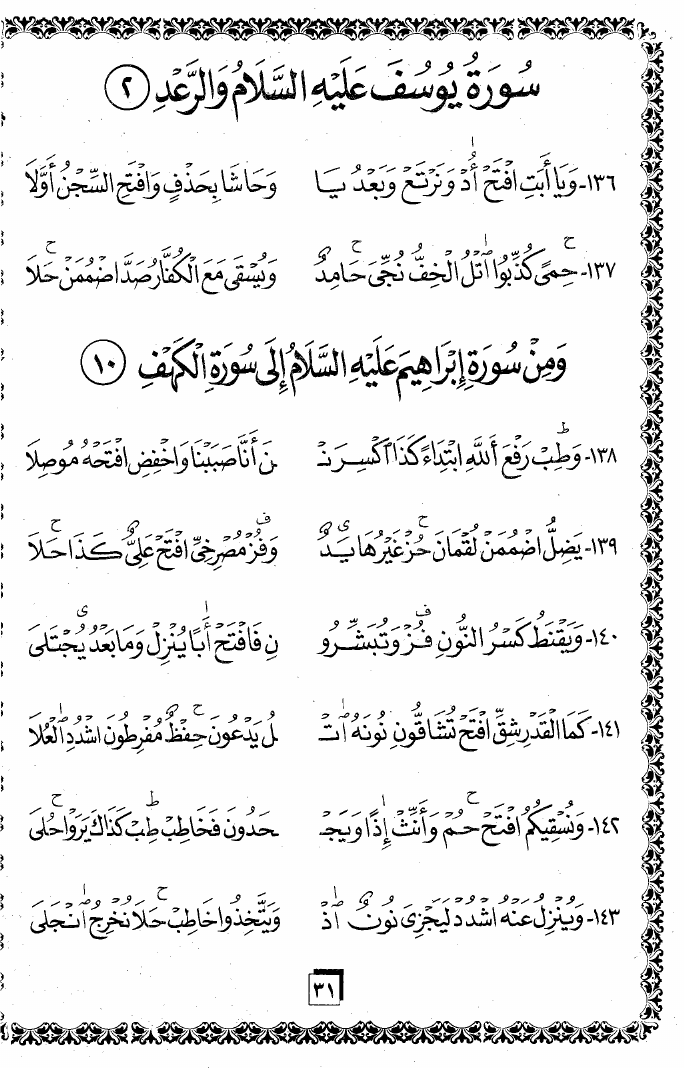 سُورَةُ يُوسُفَ عَلَيْهِ السَّلَامُ وَالرَّعْدِ (٢)
١٣٦- وَيَا أَبَتِ افْتَحْ أُدْ وَنَرْتَعْ وَبَعْدُ يَا وَحَاشَا بِحَذْفٍ وَافْتَحِ السِّجْنُ أَوَّلَا
١٣٧- حِمًى كُذِّبُوا اتْلُ الْخِفُّ نُجِّىَ حَامِدٌ وَيُسْقَى مَعَ الْكُفَّارُ صَدَّ اضْمُمَنْ حَلَا
وَمِنْ سُورَةِ إِبْرَاهِيمَ عَلَيْهِ السَّلَامُ إِلَى سُورَةِ الْكَهْفِ (١٠)
١٣٨- وَطِبْ رَفْعَ أَللَّهِ ابْتِدَاءً كَذَا اكْسِرَنْـ ـنَ أَنَّا صَبَبْنَا وَاخْفِضِ افْتَحْهُ مُوصِلَا
١٣٩- يَضِلُّ اضْمُمَنْ لُقْمَانَ حُزْ غَيْرُهَا يَدٌ وَفُزْ مُصْرِخِيَّ افْتَحْ عَلِيٌّ كَذَا حَلَا
١٤٠- وَيَقْنَطُ كَسْرُ النُّونِ فُزْ وَتُبَشِّرُو نِ فَافْتَحْ أَبًا يُنْزِلْ وَمَا بَعْدُ يُجْتَلَى
١٤١- كَمَا الْقَدْرِ شِقِّ افْتَحْ تُشَاقُّونِ نُونَهُ اتْـ ـلُ يَدْعُونَ حِفْظٌ مُفْرِطُونَ اشْدُدِ الْعُلَا
١٤٢- وَنُسْقِيكُمُ افْتَحْ حُمْ وَأَنِّثْ إِذًا وَيَجْـ ـحَدُونَ فَخَاطِبْ طِبْ كَذَاكَ يَرَوْا حُلَى
١٤٣- وَيُنْزِلُ عَنْهُ اشْدُدْ لِيَجْزِىَ نُونٌ اذْ وَيَتَّخِذُوا خَاطِبْ حَلَا نُخْرِجُ انْجَلَى
٣١